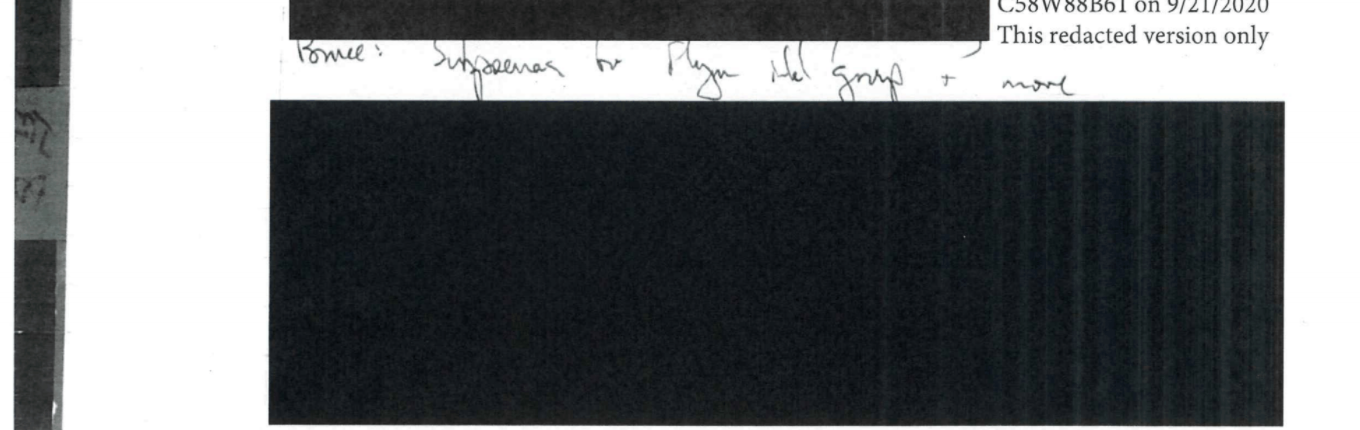 C58W88B61 on 9/21/2020
This redacted version only
Bruce: Subpoenas for Flynn Intel group + more